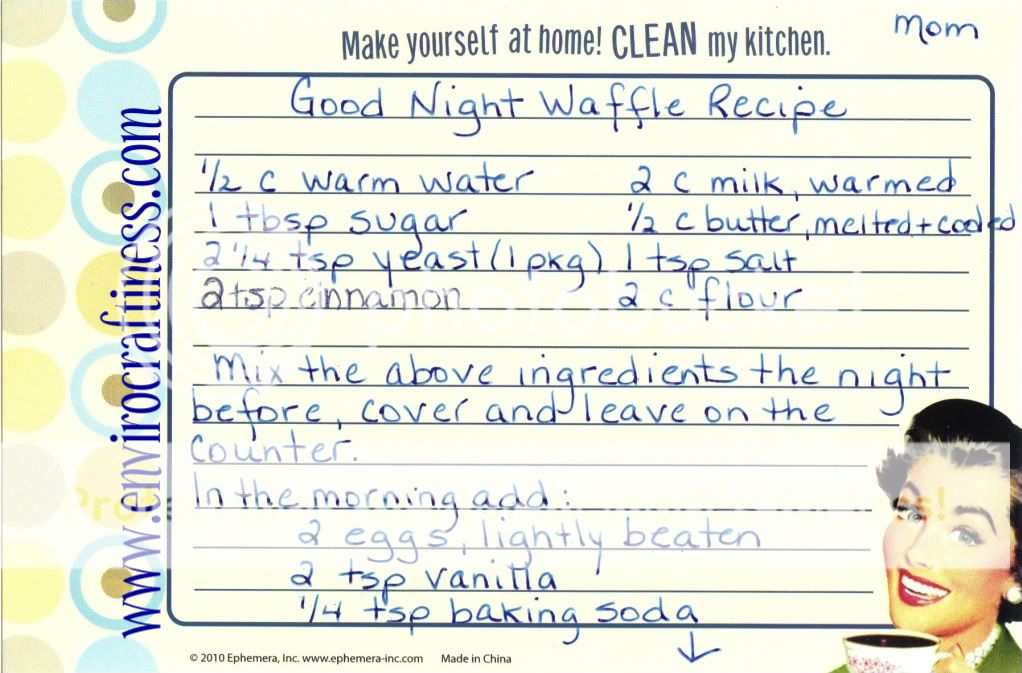 Make yourself at home! CLEAN my kitchen.
Mom
Good Night Waffle Recipe
1/2 c warm water 2 c milk, warmed
1 tbsp sugar 1/2 c butter, melted + cooled
2 1/4 tsp yeast (1 pkg) 1 tsp salt
2 tsp cinnamon 2 c flour
Mix the above ingredients the night
before, cover and leave on the
counter.
In the morning add:
2 eggs, lightly beaten
2 tsp vanilla
1/4 tsp baking soda
© 2010 Ephemera, Inc. www.ephemera-inc.com Made in China
www.envirocraftiness.com
photobucket